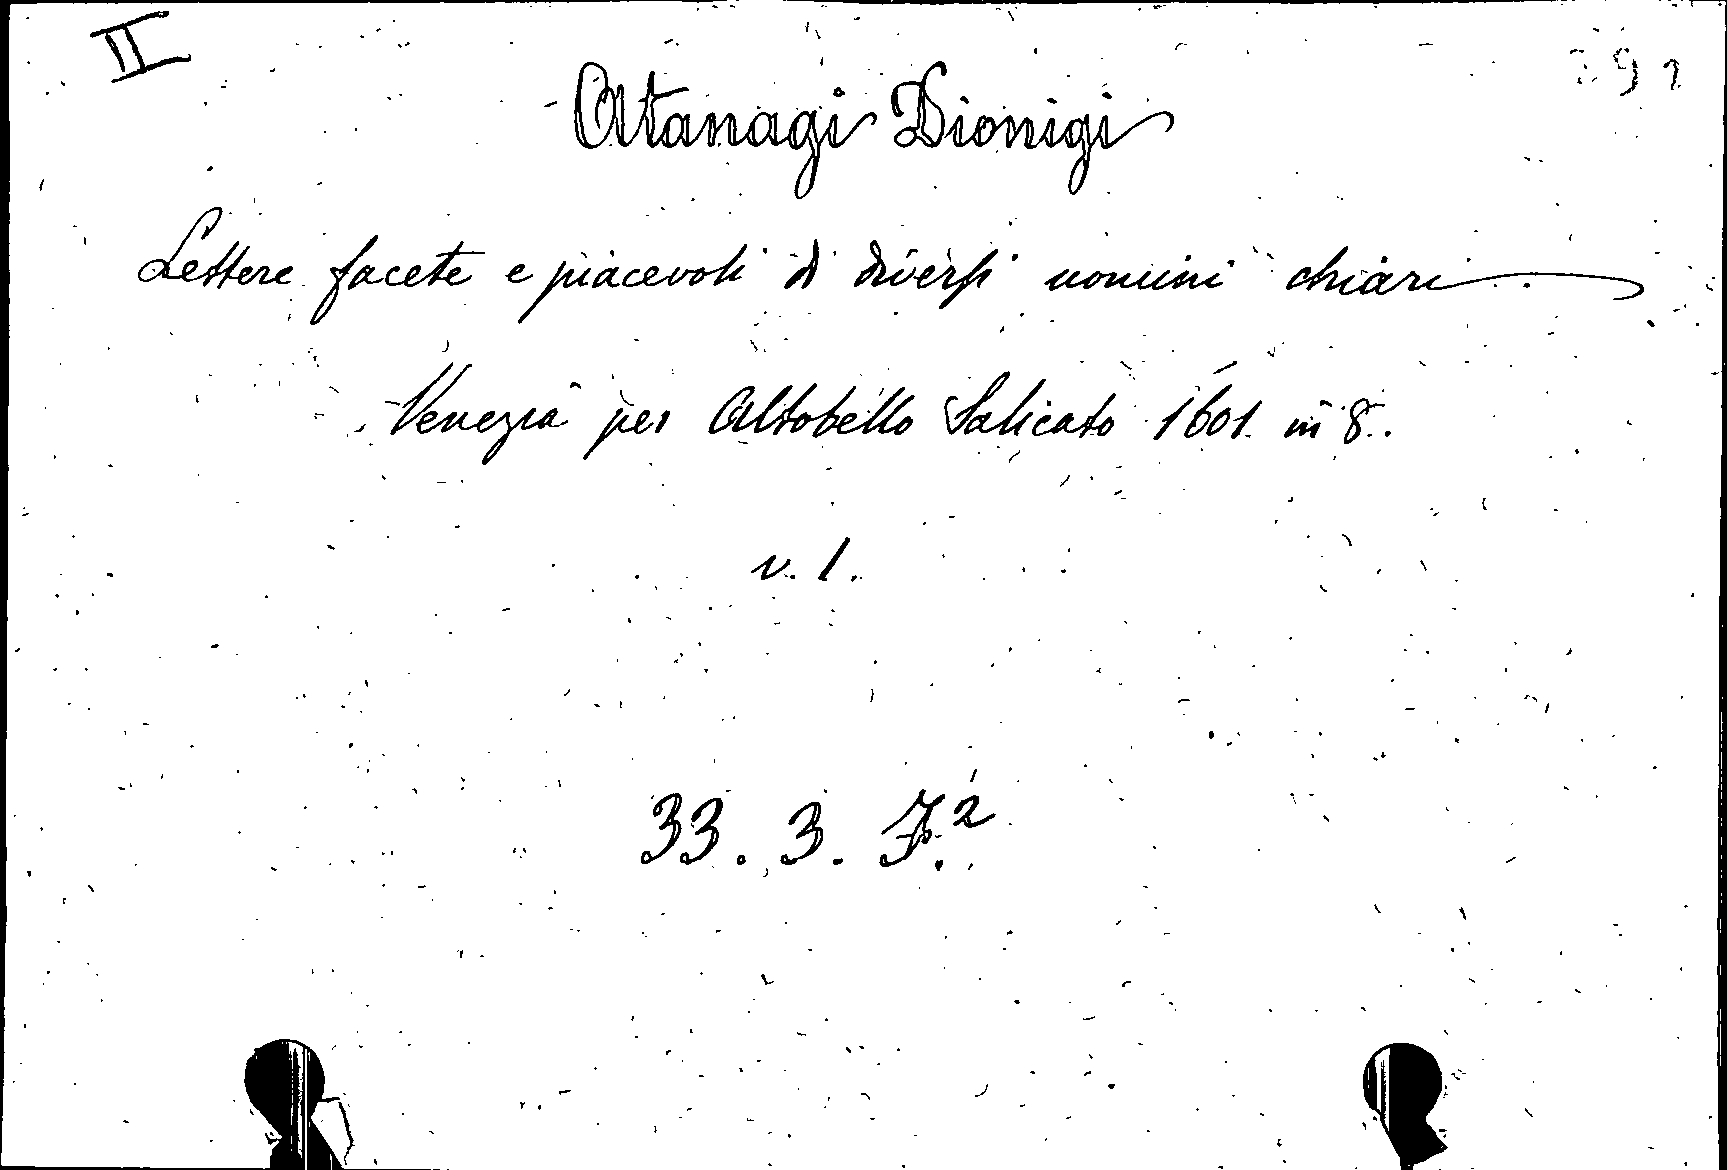 II
Atanagi Dionigi
Lettere facete e piacevoli di diversi uomini chiari
Venezia per Altobello Salicato 1601. in 8.
v. 1.
33. 3. F.2